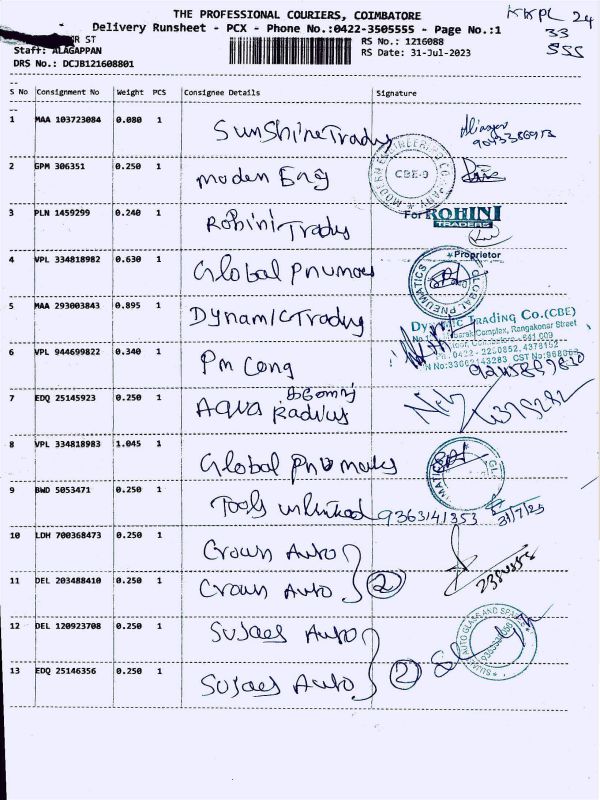 THE PROFESSIONAL COURIERS, COIMBATORE
Delivery Runsheet - PCX - Phone No.:0422-3505555 - Page No.:1
KKPL 24
33
555
ST
Staff: ALAGAPPAN
RS No.: 1216088
DRS No.: DCJB121608801
RS Date: 31-Jul-2023
S No Consignment No Weight PCS Consignee Details Signature
1 MAA 103723084 0.080 1 SunShine Tradys
2 GPM 306351 0.250 1 Moden Eng
MODERN ENGINEERING COMPANY
CBE-9
3 PLN 1459299 0.240 1 Rohini Tradys
For ROHINI
TRADERS
Proprietor
4 VPL 334818982 0.630 1 Global Pnumoes
GLOBAL PNEUMATICS
5 MAA 293003843 0.895 1 Dynamic Trading
Dynamic Trading Co.(CBE)
Complex, Rangakonar Street
641 009
Ph.: 0422 - 2230852, 4378152
6 VPL 944699822 0.340 1 Pm Cong
7 EDQ 25145923 0.250 1 Aqua Radius
8 VPL 334818983 1.045 1 Global Pnumates
9 BWD 5053471 0.250 1 Tools unlimited 9363141353
31/7/23
10 LDH 700368473 0.250 1 Crown Auto
11 DEL 203488410 0.250 1 Crown Auto 2
12 DEL 120923708 0.250 1 Sujaes Auto
13 EDQ 25146356 0.250 1 Sujaes Auto 2
AUTO GLASS AND SPARES